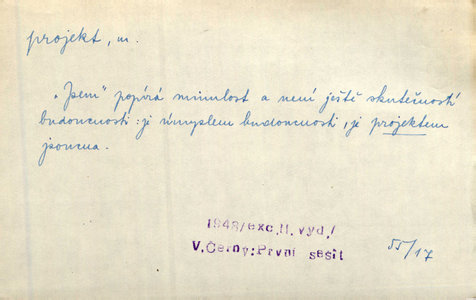 projekt, m.
„Jsem" popírá minulost a není ještě skutečností
budoucnosti: je úmyslem budoucnosti, je projektem
jsoucna.
1948/exc.II.vyd./
V.Černý:První sešit
55/17